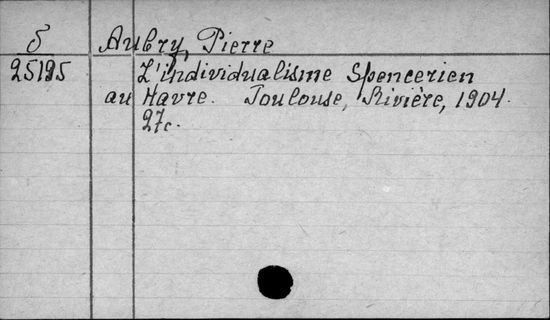 δ Aubry, Pierre
25195 L'individualisme Spencerien
au Havre. Toulouse, Rivière, 1904.
27c.